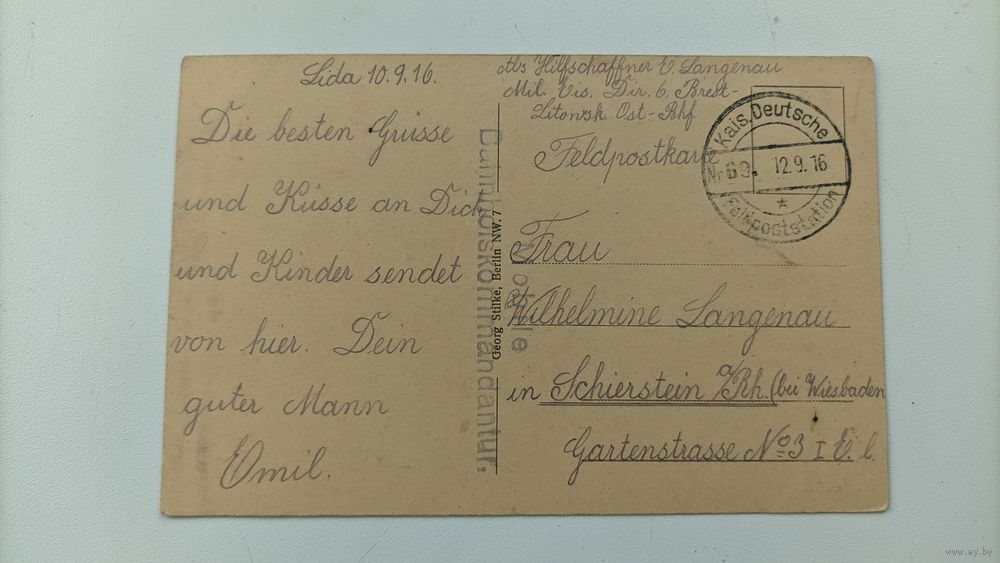 Lida 10.9.16.
Die besten Grüsse
und Küsse an Dich
und Kinder sendet
von hier. Dein
guter Mann
Emil.
Abs Hilfschaffner E. Langenau
Mil. Eis. Dir. 6. Brest-
Litowsk Ost-Bhf
Feldpostkarte
Kais. Deutsche
Nr 69. 12.9.16
Feldpoststation
Georg Stilke, Berlin NW. 7
Bahnhofskommandantur.
Frau
Wilhelmine Langenau
in Schierstein a/Rh. (bei Wiesbaden
Gartenstrasse No 3 I E. l.
www.ay.by